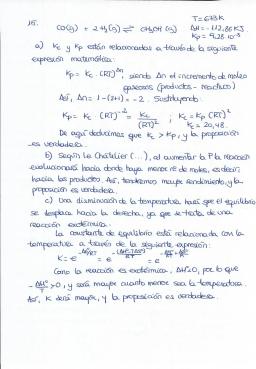 15.
T = 673K
CO(g) + 2H₂(g) ⇌ CH₃OH(g) ΔH = -112,86 KJ
Kp = 9,28·10⁻³
a) Kc y Kp están relacionadas a través de la siguiente
expresión matemática:
Kp = Kc·(RT)^Δn, siendo Δn el incremento de moles
gaseosos (productos - reactivos)
Así, Δn = 1-(2+1) = -2. Sustituyendo:
Kp = Kc·(RT)⁻² = Kc/(RT)² ; Kc = Kp(RT)²
Kc = 20,48
De aquí deducimos que Kc > Kp, y la proposición
es verdadera.
b) Según Le Châtelier (...), al aumentar la P la reacción
evolucionará hacia donde haya menor nº de moles, es decir,
hacia los productos. Así, tendremos mayor rendimiento y la
proposición es verdadera.
c) Una disminución de la temperatura hará que el equilibrio
se desplace hacia la derecha, ya que se trata de una
reacción exotérmica.
La constante de equilibrio está relacionada con la
temperatura a través de la siguiente expresión:
K = e^(-ΔG°/RT) = e^(-(ΔH°-TΔS°)/RT) = e^(-ΔH°/RT + ΔS°/R)
Como la reacción es exotérmica, ΔH<0, por lo que
-ΔH°/T > 0, y será mayor cuanto menor sea la temperatura.
Así, K será mayor, y la proposición es verdadera.